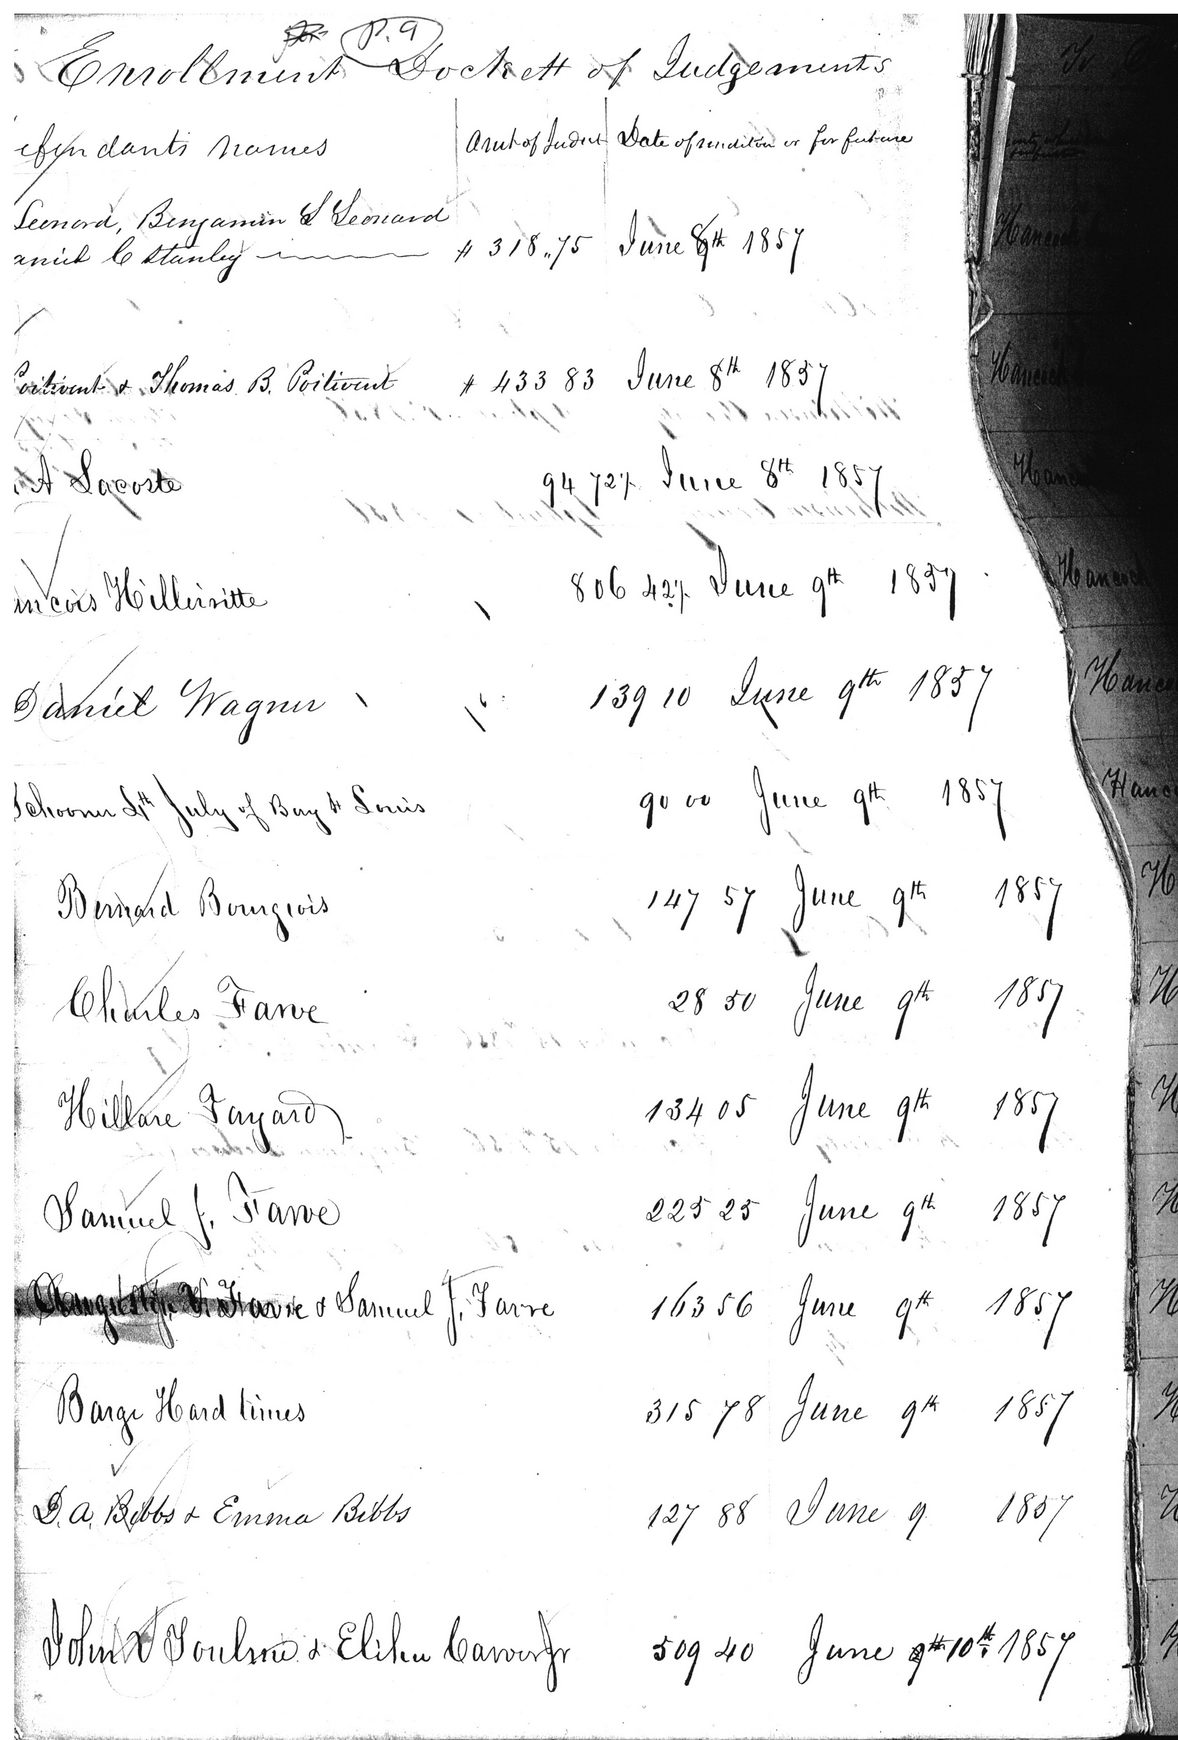 P. 9
Enrollment Dockett of Judgements
efendants names Amt of Judmt Date of rendition or forfeiture
Leonard, Benjamin S Leonard
aniel C Stanley $ 318.75 June 8th 1857
Hancock
Poitivent & Thomas B. Poitivent $ 433 83 June 8th 1857 Hancock
A Lacoste 94 72½ June 8th 1857 Hanc
ancois Hillirsitte 806 42½ June 9th 1857 Hancock
Daniel Wagner 139 10 June 9th 1857 Hanco
Schooner 4th July of Bay St Louis 90 00 June 9th 1857 Hanc
Bernard Bourgiois 147 57 June 9th 1857 H
Charles Farve 28 50 June 9th 1857 H
Hillare Fayard 134 05 June 9th 1857 H
Samuel J. Farve 225 25 June 9th 1857 H
V. Favre & Samuel J. Farve 163 56 June 9th 1857 H
Barge Hard times 315 78 June 9th 1857 H
D. A. Bibbs & Emma Bibbs 127 88 June 9 1857 H
John S Toulme & Elihu Carver Jr 509 40 June 9th 10th 1857